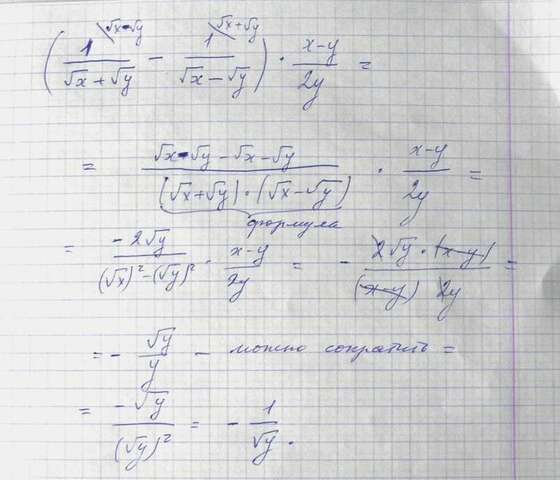 (1/(√x+√y) ^(√x-√y) - 1/(√x-√y) ^(√x+√y)) · (x-y)/(2y) =
= (√x-√y-√x-√y)/((√x+√y)·(√x-√y)) · (x-y)/(2y) =
формула
= (-2√y)/((√x)²-(√y)²) · (x-y)/(2y) = - (2√y·(x-y))/((x-y) 2y) =
= - √y/y - можно сократить =
= (-√y)/((√y)²) = - 1/√y.